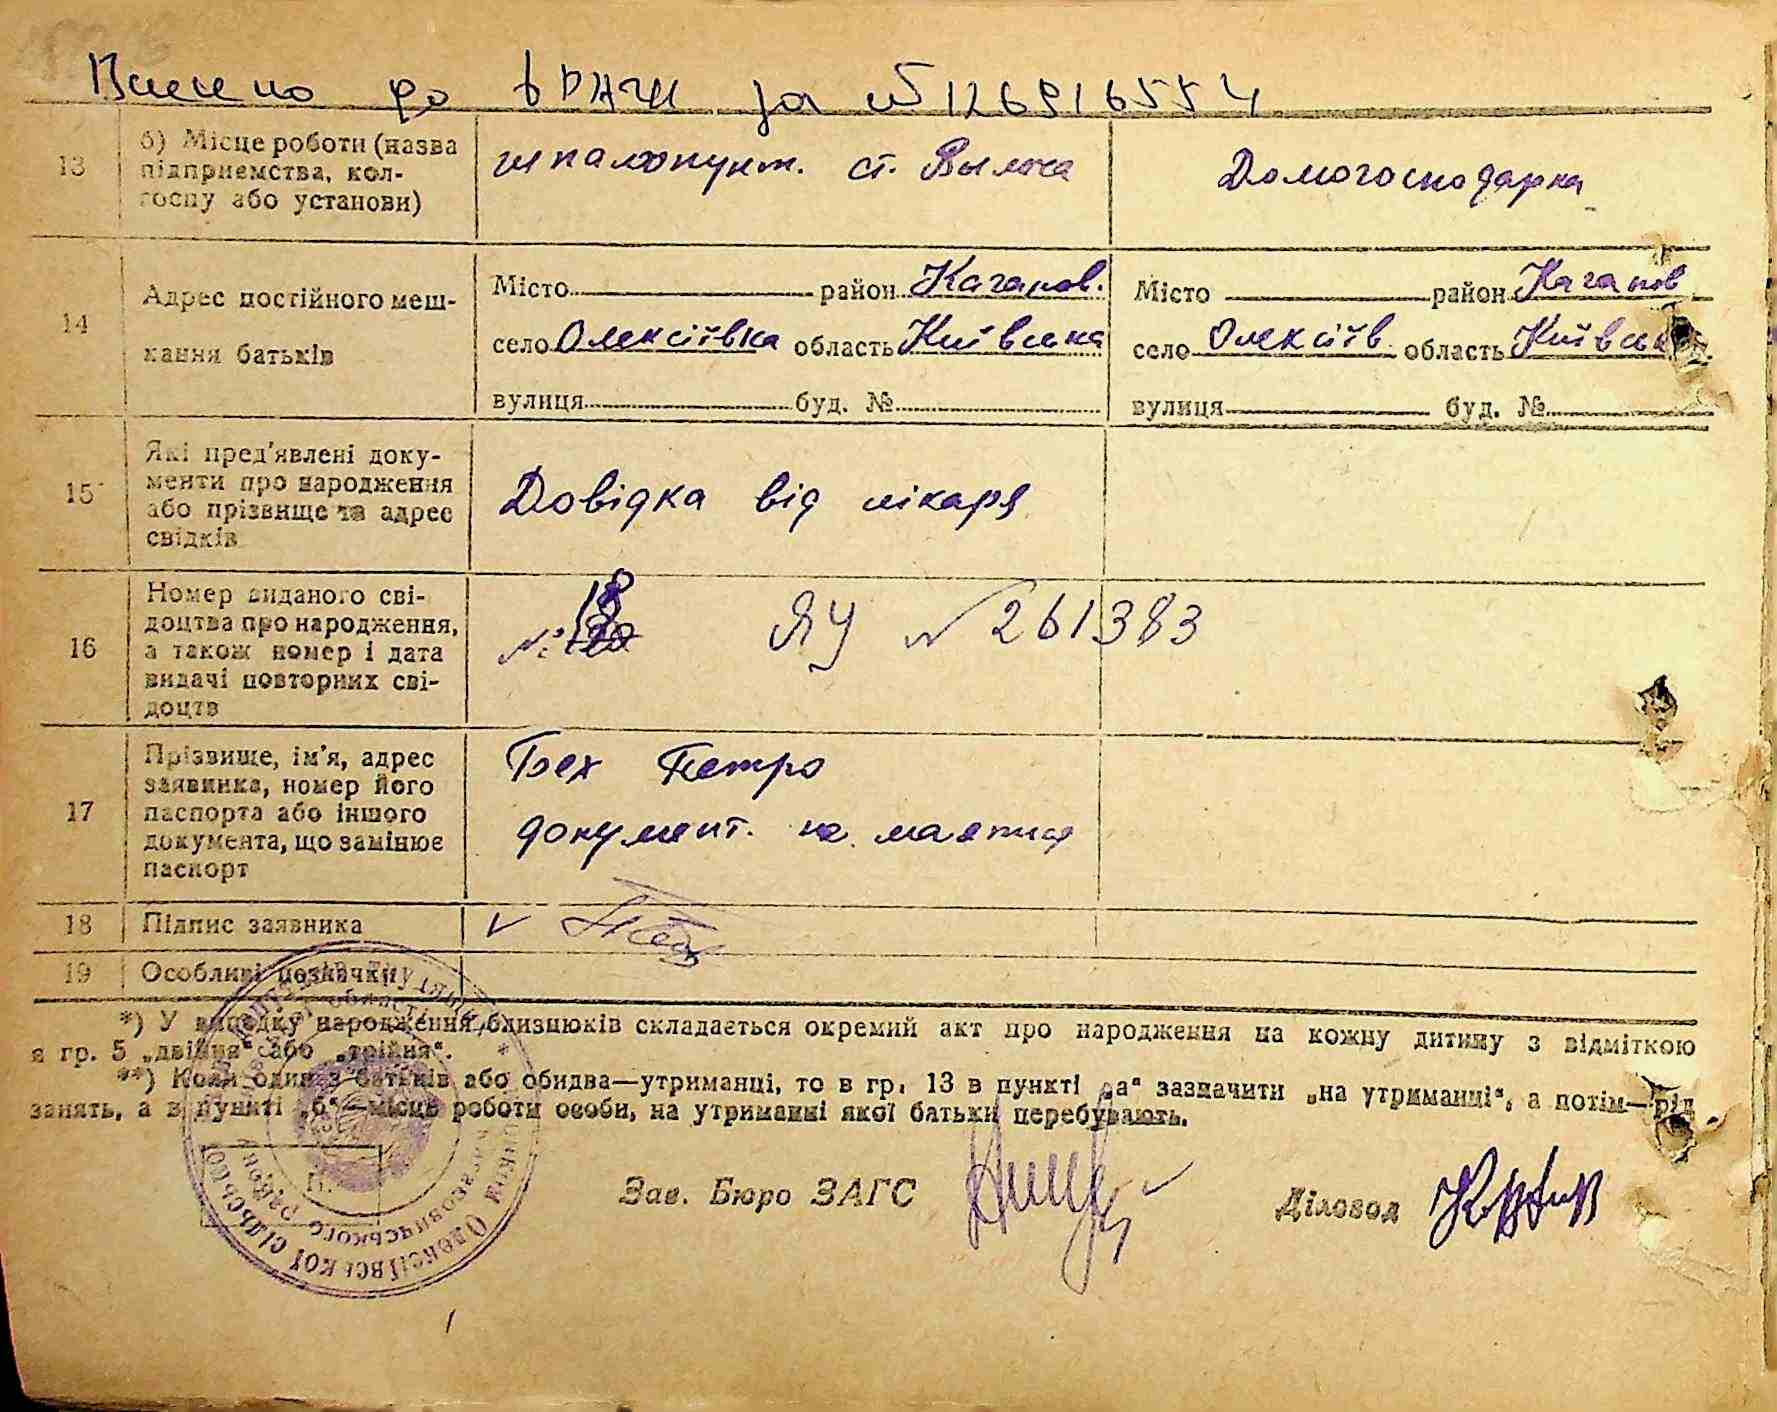 Внесено до ДРАЦС за № 126916554
13 б) Місце роботи (назва підприємства, колгоспу або установи) шпалопункт. ст. Вильча Домогосподарка
14 Адрес постійного мешкання батьків
Місто район Каганов. Місто район Каганов
село Олексіївка область Київська село Олексіїв. область Київськ
вулиця буд. № вулиця буд. №
15 Які пред'явлені документи про народження або прізвище та адрес свідків Довідка від лікаря
16 Номер виданого свідоцтва про народження, а також номер і дата видачі повторних свідоцтв № 18 ЯУ № 261383
17 Прізвище, ім'я, адрес заявника, номер його паспорта або іншого документа, що замінює паспорт Бех Петро
документ. не має
18 Підпис заявника
19 Особливі позначки
*) У випадку народження близнюків складається окремий акт про народження на кожну дитину з відміткою
в гр. 5 „двійня“ або „трійня“.
**) Коли один з батьків або обидва—утриманці, то в гр. 13 в пункті „а“ зазначити „на утриманці“, а потім—рід
занять, а в пункті „б“—місце роботи особи, на утриманні якої батьки перебувають.
Зав. Бюро ЗАГС Діловод
Олексіївської сільської